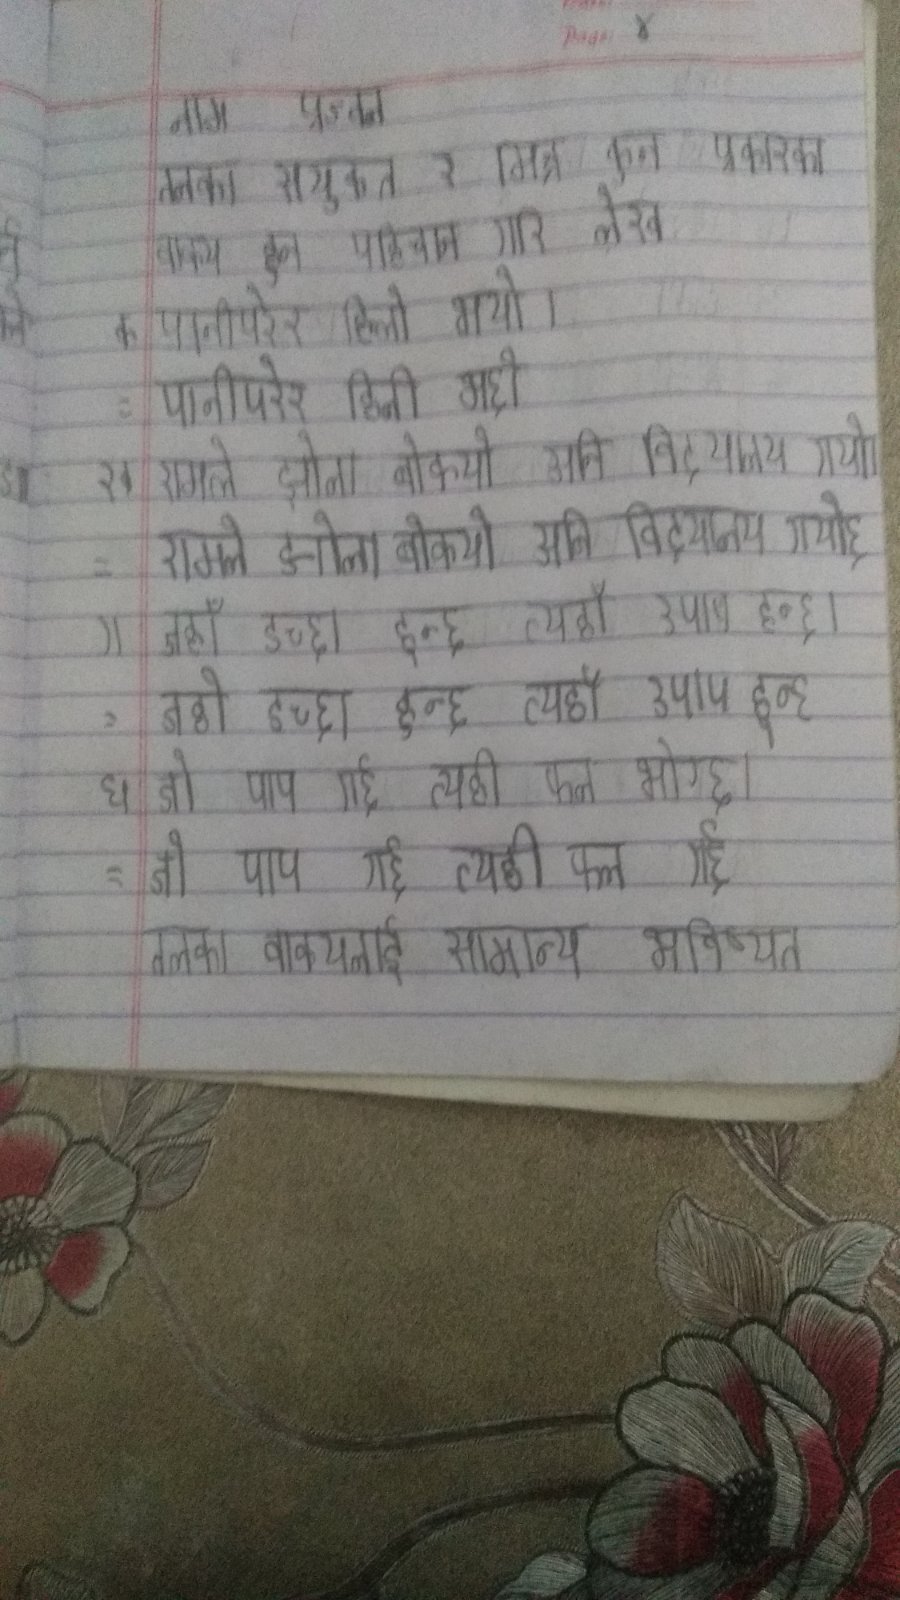 Page: ४
नाम प्रज्वल
तलका सयुकत र मिश्र कुन प्रकारका
वाक्य हुन पहिचान गरि लेख
क पानीपरेर हिलो भयो।
= पानीपरेर हिली भद्दी
ख रामले झोला बोकयो अनि विद्यालय गयो।
= रामले झोला बोकयो अनि विद्यालय गयोछ
ग जहाँ इच्छा हुन्छ त्यहाँ उपाय हुन्छ।
= जहाँ इच्छा हुन्छ त्यहाँ उपाप हुन्छ
घ जो पाप गर्छ त्यही फल भोग्छ।
= जो पाप गर्छ त्यही फल गर्छ
तलका वाक्यलाई सामान्य भविष्यत